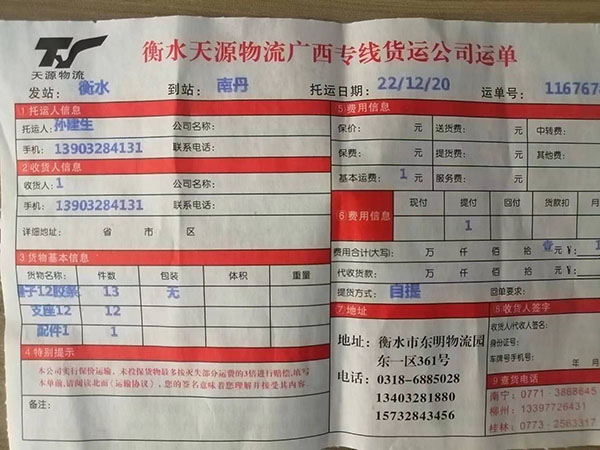 天源物流
衡水天源物流广西专线货运公司运单
发站: 衡水 到站: 南丹 托运日期: 22/12/20 运单号: 116767
1 托运人信息
托运人: 孙建生 公司名称:
手机: 13903284131 联系电话:
2 收货人信息
收货人: 1 公司名称:
手机: 13903284131 联系电话:
详细地址: 省 市 区
3 货物基本信息
货物名称: 件数 包装 体积 重量
子12胶条 13 无
支座12 12
配件1 1
4 特别提示
本公司实行保价运输，未投保货物最多按灭失部分运费的3倍进行赔偿,填写
本单前,请阅读北面《运输协议》，您的签名意味着您理解并接受其内容.
备注:
5 费用信息
保价: 元 送货费: 元 中转费:
保费: 元 提货费: 元 其他费:
基本运费: 1 元 服务费: 元
6 费用信息 现付 提付 回付 货款扣 月
1
费用合计(大写): 万 仟 佰 拾 壹 元 ¥: 1
代收货款: 万 仟 佰 拾 元 ¥:
提货方式: 自提 回单要求:
7 地址
地址: 衡水市东明物流园
东一区361号
电话: 0318-6885028
13403281880
15732843456
8 收货人签字
收货人/代收人签名:
身份证号:
车牌号手机号:
年 月
9 查货电话
南宁: 0771-3868645
柳州: 13397726431
桂林: 0773-2583317